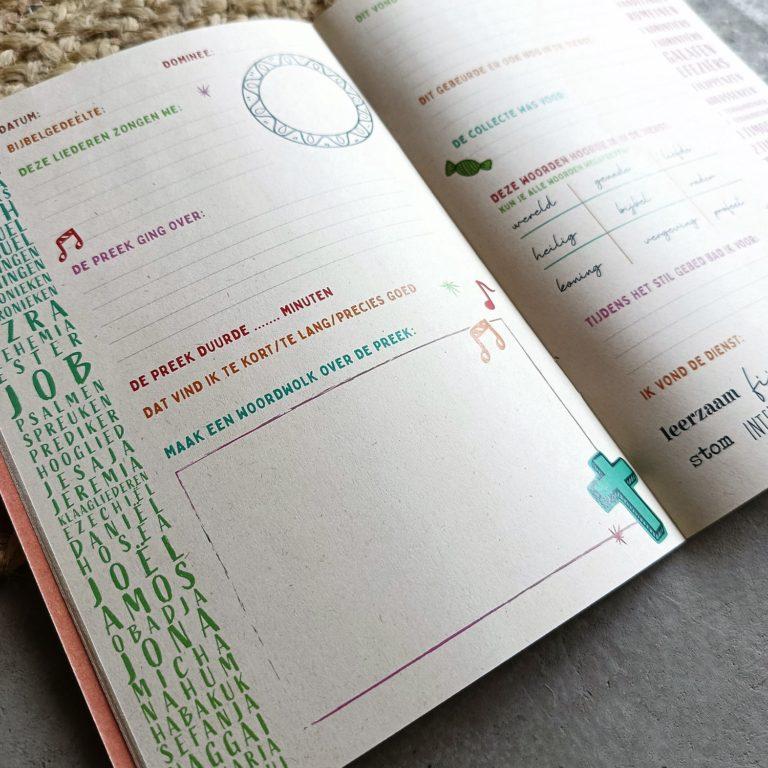 DOMINEE:
DATUM:
BIJBELGEDEELTE:
DEZE LIEDEREN ZONGEN WE:
DE PREEK GING OVER:
DE PREEK DUURDE ....... MINUTEN
DAT VIND IK TE KORT/TE LANG/PRECIES GOED
MAAK EEN WOORDWOLK OVER DE PREEK:
EZRA
NEHEMIA
ESTER
JOB
PSALMEN
SPREUKEN
PREDIKER
HOOGLIED
JESAJA
JEREMIA
KLAAGLIEDEREN
EZECHIËL
DANIËL
HOSEA
JOËL
AMOS
OBADJA
JONA
MICHA
NAHUM
HABAKUK
SEFANJA
HAGGAI
DIT VOND
DIT GEBEURDE ER OOK NOG IN DE DIENST:
DE COLLECTE WAS VOOR:
DEZE WOORDEN HOORDE IK IN DE DIENST:
KUN JE ALLE WOORDEN WEGSTREPEN?
wereld genade liefde
heilig bijbel vrede
koning vergeving profeet
TIJDENS HET STIL GEBED BAD IK VOOR:
IK VOND DE DIENST:
leerzaam
stom
ROMEINEN
GALATEN
EFEZIËRS